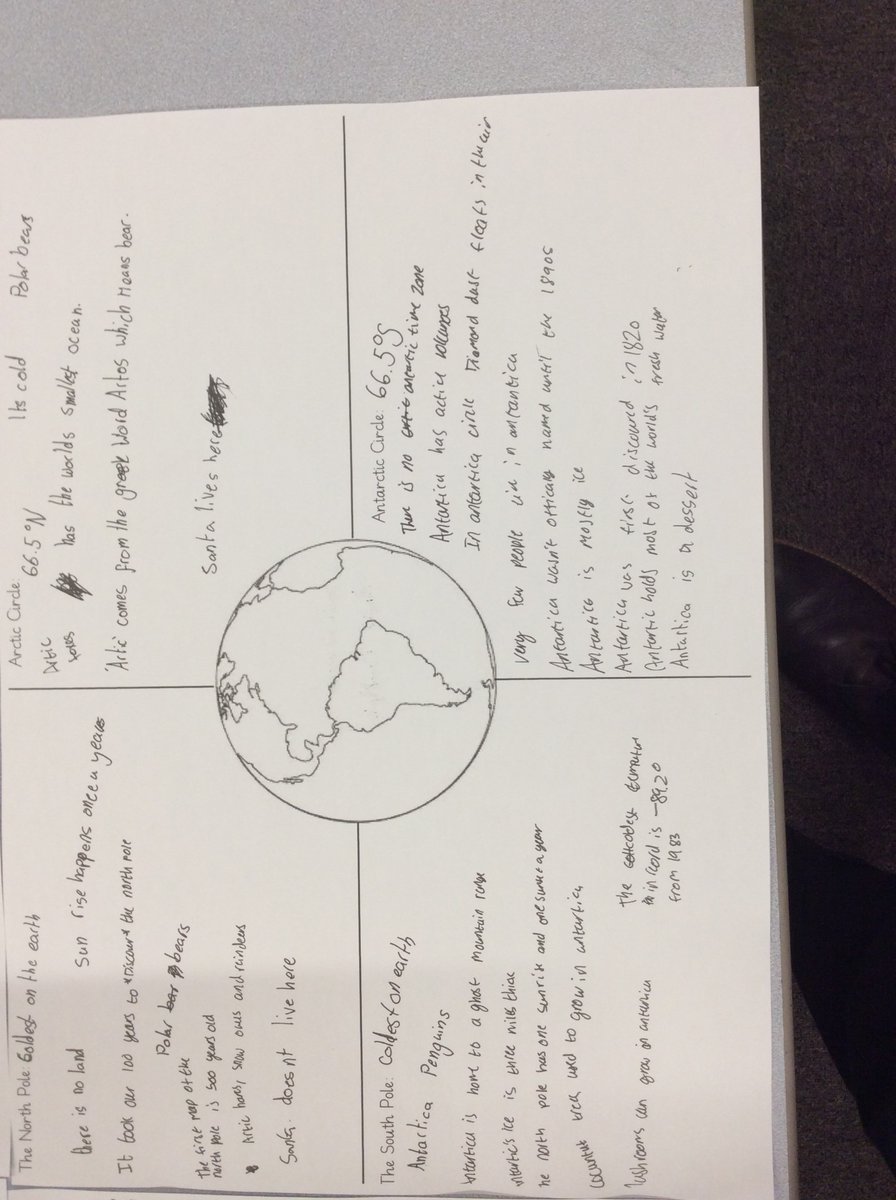 The North Pole: Coldest on the earth
there is no land
Sun rise happens once a year
It took our 100 years to discover the north pole
Polar bears
the first map of the
north Pole is 500 years old
Artic hares, snow owls and raindeers
Santa doesnt live here
Arctic Circle 66.5°N
Its cold
Polar bears
Artic has the worlds smallest ocean.
'Artic' comes from the greek Word Artos which means bear.
Santa lives here
The South Pole: Coldest on earth
Antartica Penguins
Antartica is home to a ghost mountain range
Antartic's ice is three miles thick
he north pole has one sunrise and one sunset a year
trees used to grow in antartica
Mushrooms can grow on antartica
The coldest
in record is -89.20
from 1983
Antarctic Circle: 66.5°S
There is no antarctic time zone
Antartica has active volcanoes
In antartica circle Diamond dust floats in the air
very few people live in antrantica
Antartica wasn't offically named until the 1890s
Antartica is mostly ice
Antartica was first discoured in 1820
Antartic holds most of the world's fresh water
Antartica is a dessert